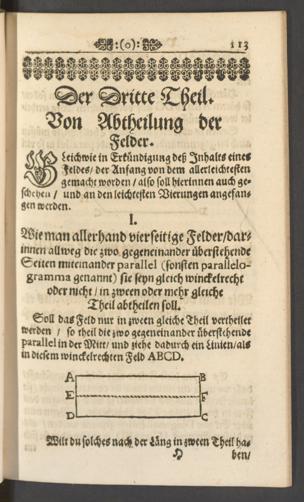 :(o):
113
Der Dritte Theil.
Von Abtheilung der
Felder.
Gleichwie in Erkündigung deß Inhalts eines
Feldes/ der Anfang von dem allerleichtesten
gemacht worden/ also soll hierinnen auch ge-
schehen/ und an den leichtesten Vierungen angefan-
gen werden.
I.
Wie man allerhand vierseitige Felder/ dar-
innen allweg die zwo gegeneinander überstehende
Seiten miteinander parallel (sonsten parallelo-
gramma genannt) sie seyn gleich winckelrecht
oder nicht/ in zween oder mehr gleiche
Theil abtheilen soll.
Soll das Feld nur in zween gleiche Theil vertheilet
werden/ so theil die zwo gegeneinander überstehende
parallel in der Mitt/ und ziehe dadurch ein Linien/ als
in diesem winckelrechten Feld ABCD.
A B
E F
D C
Wilt du solches nach der Läng in zween Theil ha-
H ben/